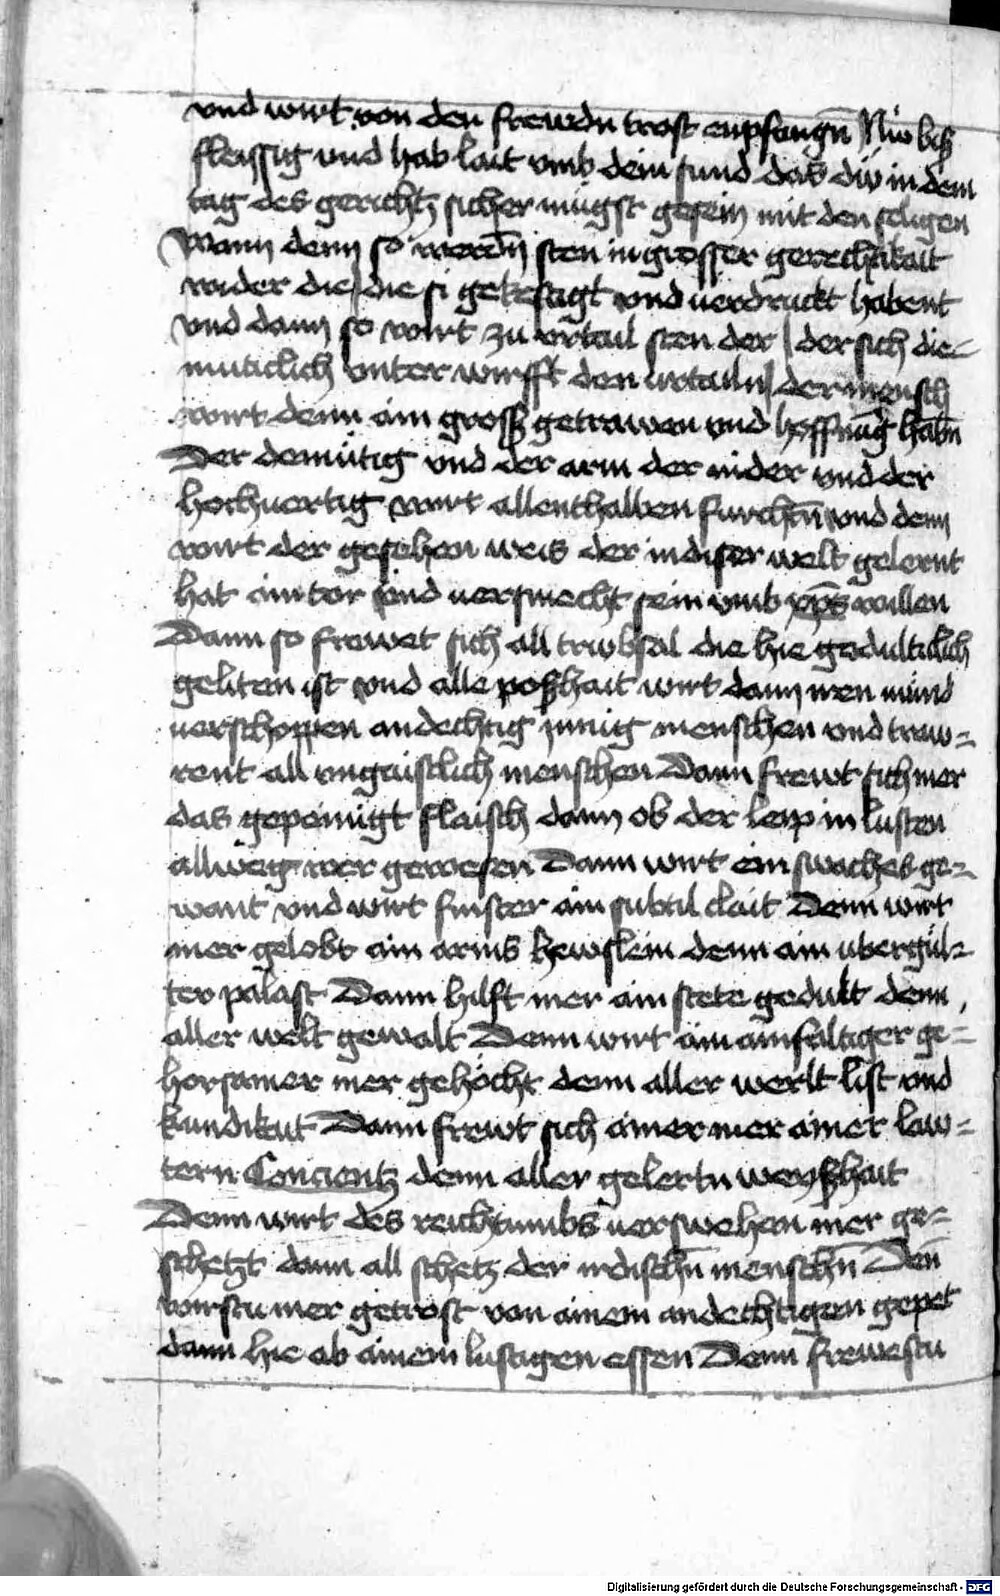 vnd wirt von den frewdn trost enpfangn̄ Nu bis
fleissig vnd hab lait vmb dein sund das du in dem
tag des gerichtz sicher mugst gesein mit den seligen
Wann denn so werdn̄ sten in grosser gerechtikait
wider die die si gekestigt vnd verdruckt habent
vnd dann so wirt zu vrtail sten der der sich die=
muticlich vnter wirfft den vrtailn der mensch
wirt denn ain gross getrawen vnd hoffnūg habn̄
Der demütig vnd der arm der nider vnd der
hochuertig wirt allenthalben furchtn̄ vnd denn
wirt der gesehen weis der in diser welt gelernt
hat ain tor vnd versmecht sein vmb xp̄s willen
Dann so frewet sich all trubsal die hie gedulticlich
geliten ist vnd alle posshait wirt dann iren mund
verschoppen andechtig innig menschen vnd traw=
rent all vngaistlich menschen Dann frewt sich mer
das gepeinigt flaisch dann ob der leip in lusten
allweg wer gewesen Dann wirt ein swaches ge=
want vnd wirt finster ain subtil clait Denn wirt
mer gelobt ain arms hewslein denn ain vbergul=
ter palast Dann hilft mer ain stete gedult denn
aller welt gewalt Denn wirt ain ainfaltiger ge=
horsamer mer gehöcht denn aller werlt list vnd
kundikait Dann frewt sich ainer mer ainer law=
tern Concientz denn aller gelertn weysshait
Denn wirt des reichtumbs verswehen mer ge=
schetzt dann all schetz der irdischn̄ menschn̄ Den̄
wirstu mer getrost von ainem andechtigen gepet
dann hie ab ainem lustigen essen Denn frewestu
Digitalisierung gefördert durch die Deutsche Forschungsgemeinschaft - DFG